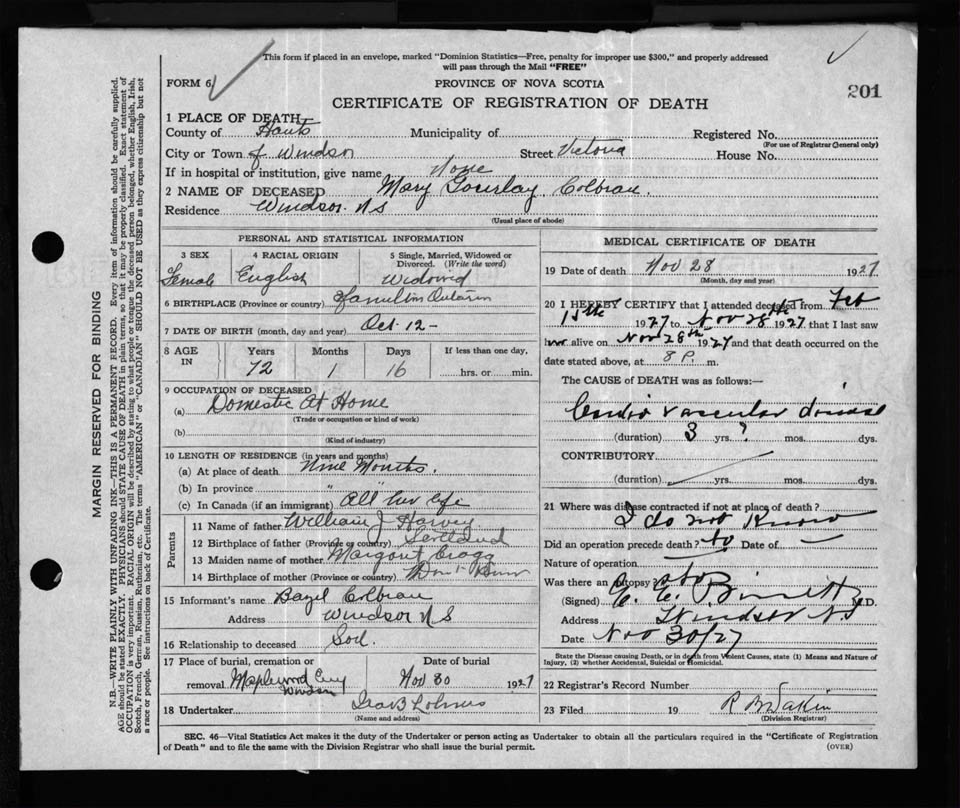 This form if placed in an envelope, marked "Dominion Statistics—Free, penalty for improper use $300," and properly addressed
will pass through the Mail "FREE"
FORM 6
PROVINCE OF NOVA SCOTIA
201
CERTIFICATE OF REGISTRATION OF DEATH
1 PLACE OF DEATH
County of Hants Municipality of Registered No.
(For use of Registrar General only)
City or Town of Windsor Street Victoria House No.
If in hospital or institution, give name None
2 NAME OF DECEASED Mary Gourlay Colbran
Residence Windsor. N S
(Usual place of abode)
PERSONAL AND STATISTICAL INFORMATION
3 SEX 4 RACIAL ORIGIN 5 Single, Married, Widowed or Divorced. (Write the word)
Female English Widowed
6 BIRTHPLACE (Province or country) Hamilton Ontario
7 DATE OF BIRTH (month, day and year) Oct. 12 -
8 AGE IN Years Months Days If less than one day,
72 1 16 hrs. or min.
9 OCCUPATION OF DECEASED
(a) Domestic At Home
(Trade or occupation or kind of work)
(b)
(Kind of industry)
10 LENGTH OF RESIDENCE (in years and months)
(a) At place of death Nine Months.
(b) In province " "
(c) In Canada (if an immigrant) All her life
Parents
11 Name of father William J Harvey
12 Birthplace of father (Province or country) Scotland
13 Maiden name of mother Margaret
14 Birthplace of mother (Province or country) Don't Know
15 Informant's name Bazil Colbran
Address Windsor N S
16 Relationship to deceased Son.
17 Place of burial, cremation or Date of burial
removal Maplewood Cmy Windsor Nov 30 1927
18 Undertaker
(Name and address)
MEDICAL CERTIFICATE OF DEATH
19 Date of death Nov 28 1927
(Month, day and year)
20 I HEREBY CERTIFY that I attended deceased from Feb
15th 1927 to Nov 28th 1927 that I last saw
her alive on Nov 28th 1927 and that death occurred on the
date stated above, at 8 P. m.
The CAUSE of DEATH was as follows:—
Cardio vascular disease
(duration) 3 yrs. ? mos. dys.
CONTRIBUTORY
(duration) yrs. mos. dys.
21 Where was disease contracted if not at place of death?
I do not Know
Did an operation precede death? No Date of —
Nature of operation
Was there an autopsy? No
(Signed) C. E. M.D.
Address Windsor N.S
Date Nov 30/27
State the Disease causing Death, or in death from Violent Causes, state (1) Means and Nature of
Injury, (2) whether Accidental, Suicidal or Homicidal.
22 Registrar's Record Number
23 Filed 19
(Division Registrar)
SEC. 46—Vital Statistics Act makes it the duty of the Undertaker or person acting as Undertaker to obtain all the particulars required in the "Certificate of Registration
of Death" and to file the same with the Division Registrar who shall issue the burial permit.
(OVER)
MARGIN RESERVED FOR BINDING
N.B.—WRITE PLAINLY WITH UNFADING INK—THIS IS A PERMANENT RECORD. Every item of information should be carefully supplied.
AGE should be stated EXACTLY. PHYSICIANS should STATE CAUSE OF DEATH in plain terms, so that it may be properly classified. Exact statement of
OCCUPATION is very important. RACIAL ORIGIN will be described by stating to what people or tongue the deceased person belonged, whether English, Irish,
Scotch, French, German, Russian, Ruthenian, etc. The terms "AMERICAN" or "CANADIAN" SHOULD NOT BE USED as they express citizenship but not
a race or people. See instructions on back of Certificate.